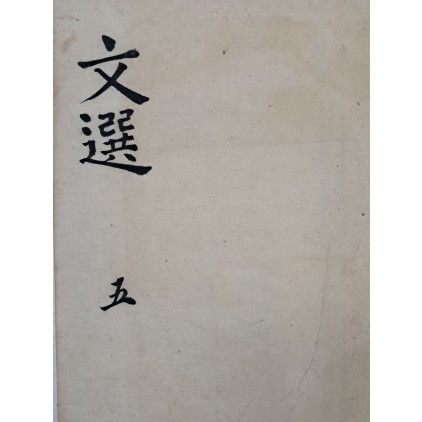 文選
五